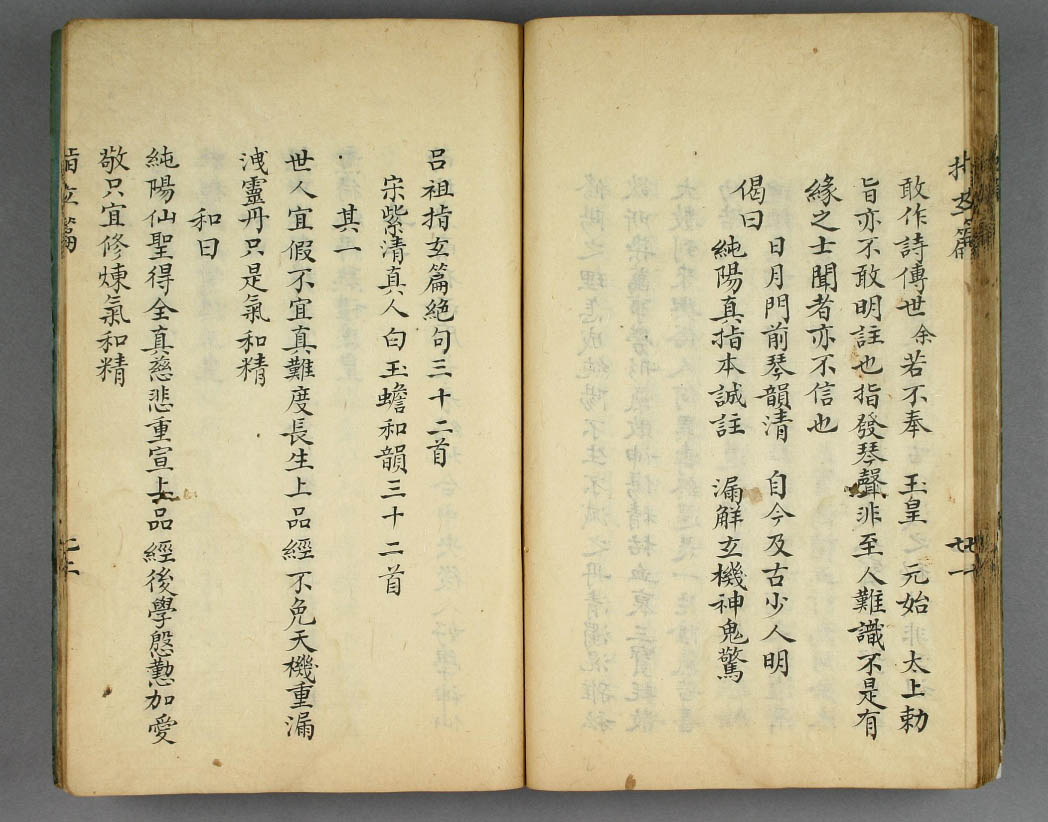 敢作詩傳世余若不奉 玉皇 元始 太上勅
旨亦不敢明註也指發琴聲非至人難識不是有
緣之士聞者亦不信也
偈曰 日月門前琴韻清 自今及古少人明
純陽真指本誠註 漏觧玄機神鬼驚
呂祖指玄篇絕句三十二首
宋紫清真人白玉蟾和韻三十二首
其一
世人宜假不宜真難度長生上品經不免天機重漏
洩靈丹只是氣和精
和曰
純陽仙聖得全真慈悲重宣上品經後學慇懃加愛
敬只宜修煉氣和精